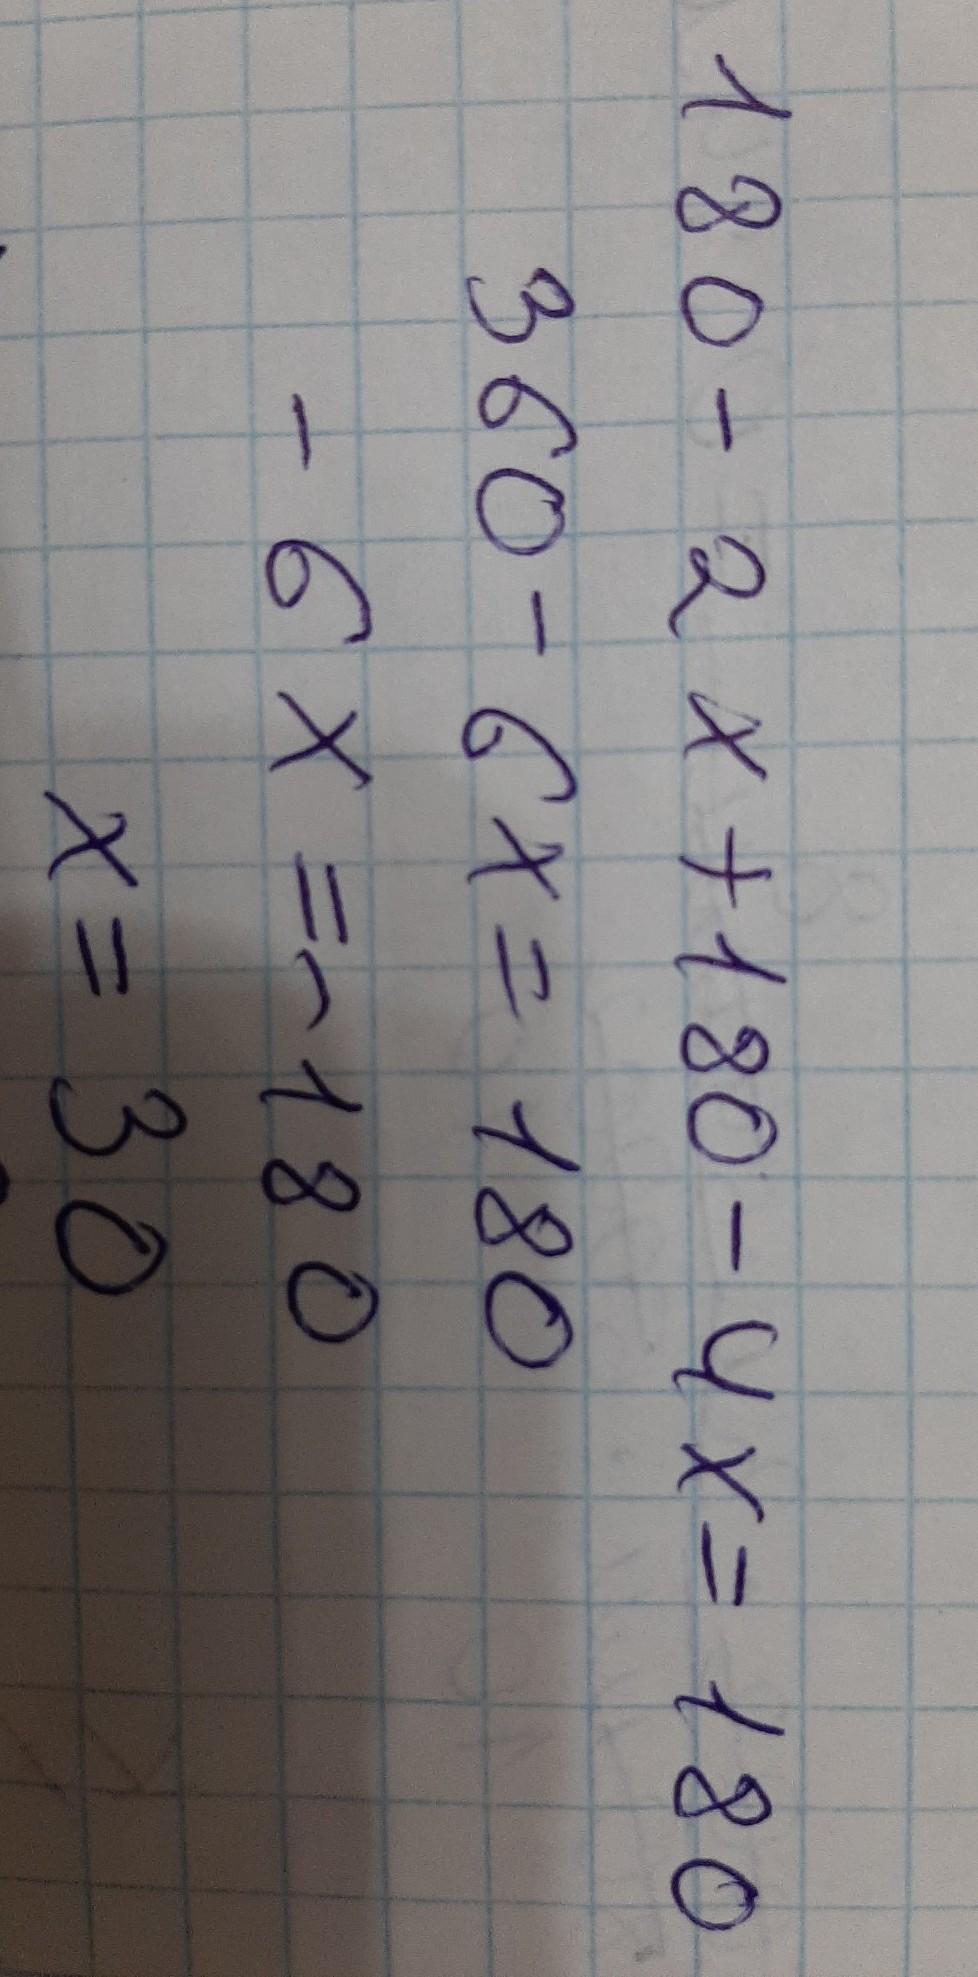 180 - 2x + 180 - 4x = 180
360 - 6x = 180
- 6x = -180
x = 30